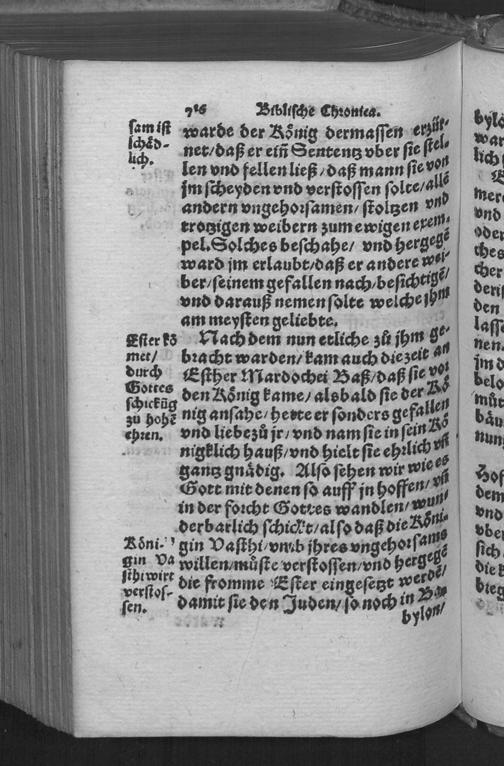 Biblische Chronica.
sam ist
schåd-
lich.
warde der Kônig dermassen erzür-
net/daß er eiñ Sententz vber sie stel-
len vnd fellen ließ/daß mann sie von
jm scheyden vnd verstossen solte/allẽ
andern vngehorsamen/stoltzen vnd
trotzigen weibern zum ewigen exem-
pel. Solches beschahe/ vnd hergegẽ
ward jm erlaubt/daß er andere wei-
ber/seinem gefallen nach/besichtigẽ/
vnd darauß nemen solte welche jhm
am meysten geliebte.
Ester kõ
met/
durch
Gottes
schickũg
zu hohẽ
ehren.
Nach dem nun etliche zů jhm ge-
bracht warden/kam auch die zeit an
Esther Mardochei Baß/daß sie vor
den Kônig kame/alsbald sie der Kô-
nig ansahe/hette er sonders gefallen
vnd liebe zů jr/vnd nam sie in sein Kô
nigklich hauß/vnd hielt sie ehrlich vñ
gantz gnådig. Also sehen wir wie es
Gott mit denen so auff jn hoffen/vñ
in der forcht Gottes wandlen/wun-
derbarlich schickt/also daß die Kôni-
Kôni-
gin Va
sthi wirt
verstos-
sen.
gin Vasthi/vmb jhres vngehorsams
willen/můste verstossen/vnd hergegẽ
die fromme Ester eingesetzt werdẽ/
damit sie den Juden/so noch in Ba-
bylon/